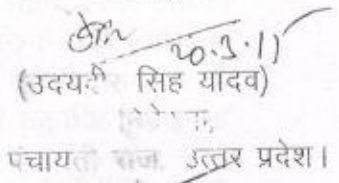 20.3.11
(उदय सिंह यादव)
पंचायती राज, उत्तर प्रदेश।